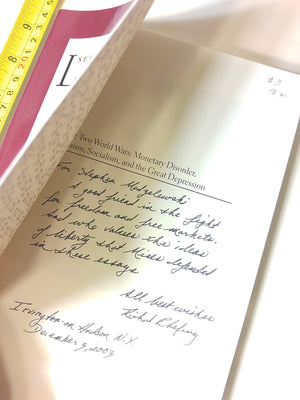 SE
Two World Wars: Monetary Disorder,
nism, Socialism, and the Great Depression
For Stephen
A good friend in the fight
for freedom and free markets.
And who values the ideas
of liberty that Mises defended
in these essays
All best wishes
Richard Ebeling
Irvington-on Hudson, N.Y.
December 3, 2003